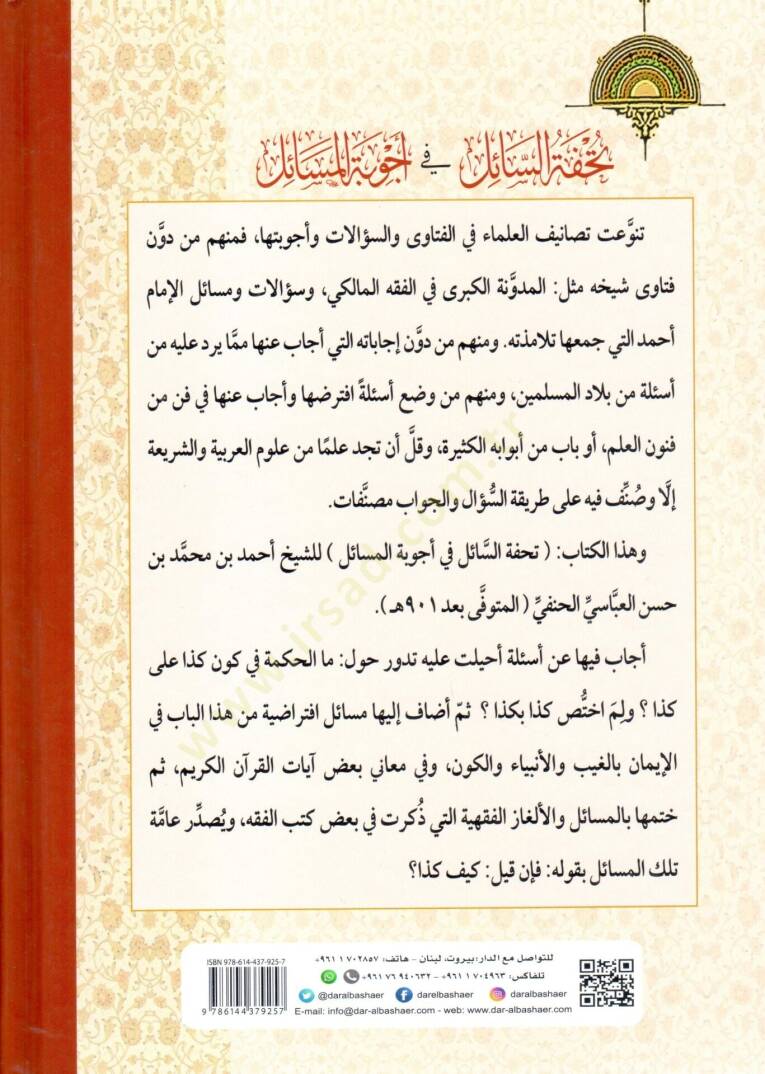 تُحْفَةُ السَّائِل في أَجْوِبَةِ المَسَائِل
تنوَّعت تصانيف العلماء في الفتاوى والسؤالات وأجوبتها، فمنهم من دوَّن
فتاوى شيخه مثل: المدوَّنة الكبرى في الفقه المالكي، وسؤالات ومسائل الإمام
أحمد التي جمعها تلامذته. ومنهم من دوَّن إجاباته التي أجاب عنها ممَّا يرد عليه من
أسئلة من بلاد المسلمين، ومنهم من وضع أسئلةً افترضها وأجاب عنها في فن من
فنون العلم، أو باب من أبوابه الكثيرة، وقلَّ أن تجد علمًا من علوم العربية والشريعة
إلَّا وصُنِّف فيه على طريقة السُّؤال والجواب مصنَّفات.
وهذا الكتاب: ( تحفة السَّائل في أجوبة المسائل ) للشيخ أحمد بن محمَّد بن
حسن العبَّاسيِّ الحنفيِّ ( المتوفَّى بعد ٩٠١هـ ).
أجاب فيها عن أسئلة أحيلت عليه تدور حول: ما الحكمة في كون كذا على
كذا ؟ ولِمَ اختُّص كذا بكذا ؟ ثمّ أضاف إليها مسائل افتراضية من هذا الباب في
الإيمان بالغيب والأنبياء والكون، وفي معاني بعض آيات القرآن الكريم، ثم
ختمها بالمسائل والألغاز الفقهية التي ذُكرت في بعض كتب الفقه، ويُصدِّر عامَّة
تلك المسائل بقوله: فإن قيل: كيف كذا؟
www.irsad.com.tr
ISBN 978-614-437-925-7
9 786144 379257
للتواصل مع الدار: بيروت، لبنان - هاتف: ٧٠٢٨٥٧ ١ ٩٦١+
تلفاكس: ٧٠٤٩٦٣ ١ ٩٦١+ - ٩٤٠٦٣٢ ٧٦ ٩٦١+
@daralbashaer darelbashaer daralbashaer
E-mail: info@dar-albashaer.com - web: www.dar-albashaer.com